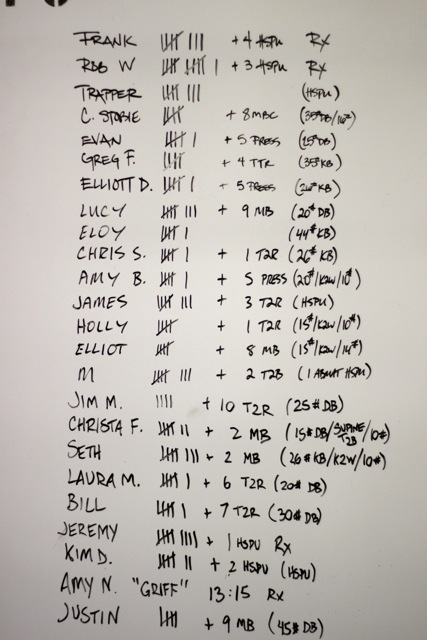 FRANK 卌 III + 4 HSPU Rx
ROB W 卌 卌 I + 3 HSPU Rx
TRAPPER 卌 III (HSPU)
C. STOBIE 卌 + 8 MBC (35#DB/16#)
EVAN 卌 I + 5 PRESS (25#DB)
GREG F. 卌 + 4 TTR (35#KB)
ELLIOTT D. 卌 I + 5 PRESS (26#KB)
LUCY 卌 III + 9 MB (20#DB)
ELOY 卌 I (44#KB)
CHRIS S. 卌 I + 1 T2R (26#KB)
AMY B. 卌 I + 5 PRESS (20#/K2W/10#)
JAMES 卌 III + 3 T2R (HSPU)
HOLLY 卌 + 1 T2R (15#/K2W/10#)
ELLIOT 卌 + 8 MB (15#/K2W/14#)
M 卌 III + 2 T2B (1 ABMAT HSPU)
JIM M. IIII + 10 T2R (25# DB)
CHRISTA F. 卌 II + 2 MB (15#DB/SUPINE T2B/10#)
SETH 卌 III + 2 MB (26#KB/K2W/10#)
LAURA M. 卌 I + 6 T2R (20# DB)
BILL 卌 I + 7 T2R (30# DB)
JEREMY 卌 IIII + 1 HSPU Rx
KIM D. 卌 II + 2 HSPU (HSPU)
AMY N. "GRIFF" 13:15 Rx
JUSTIN 卌 + 9 MB (45# DB)